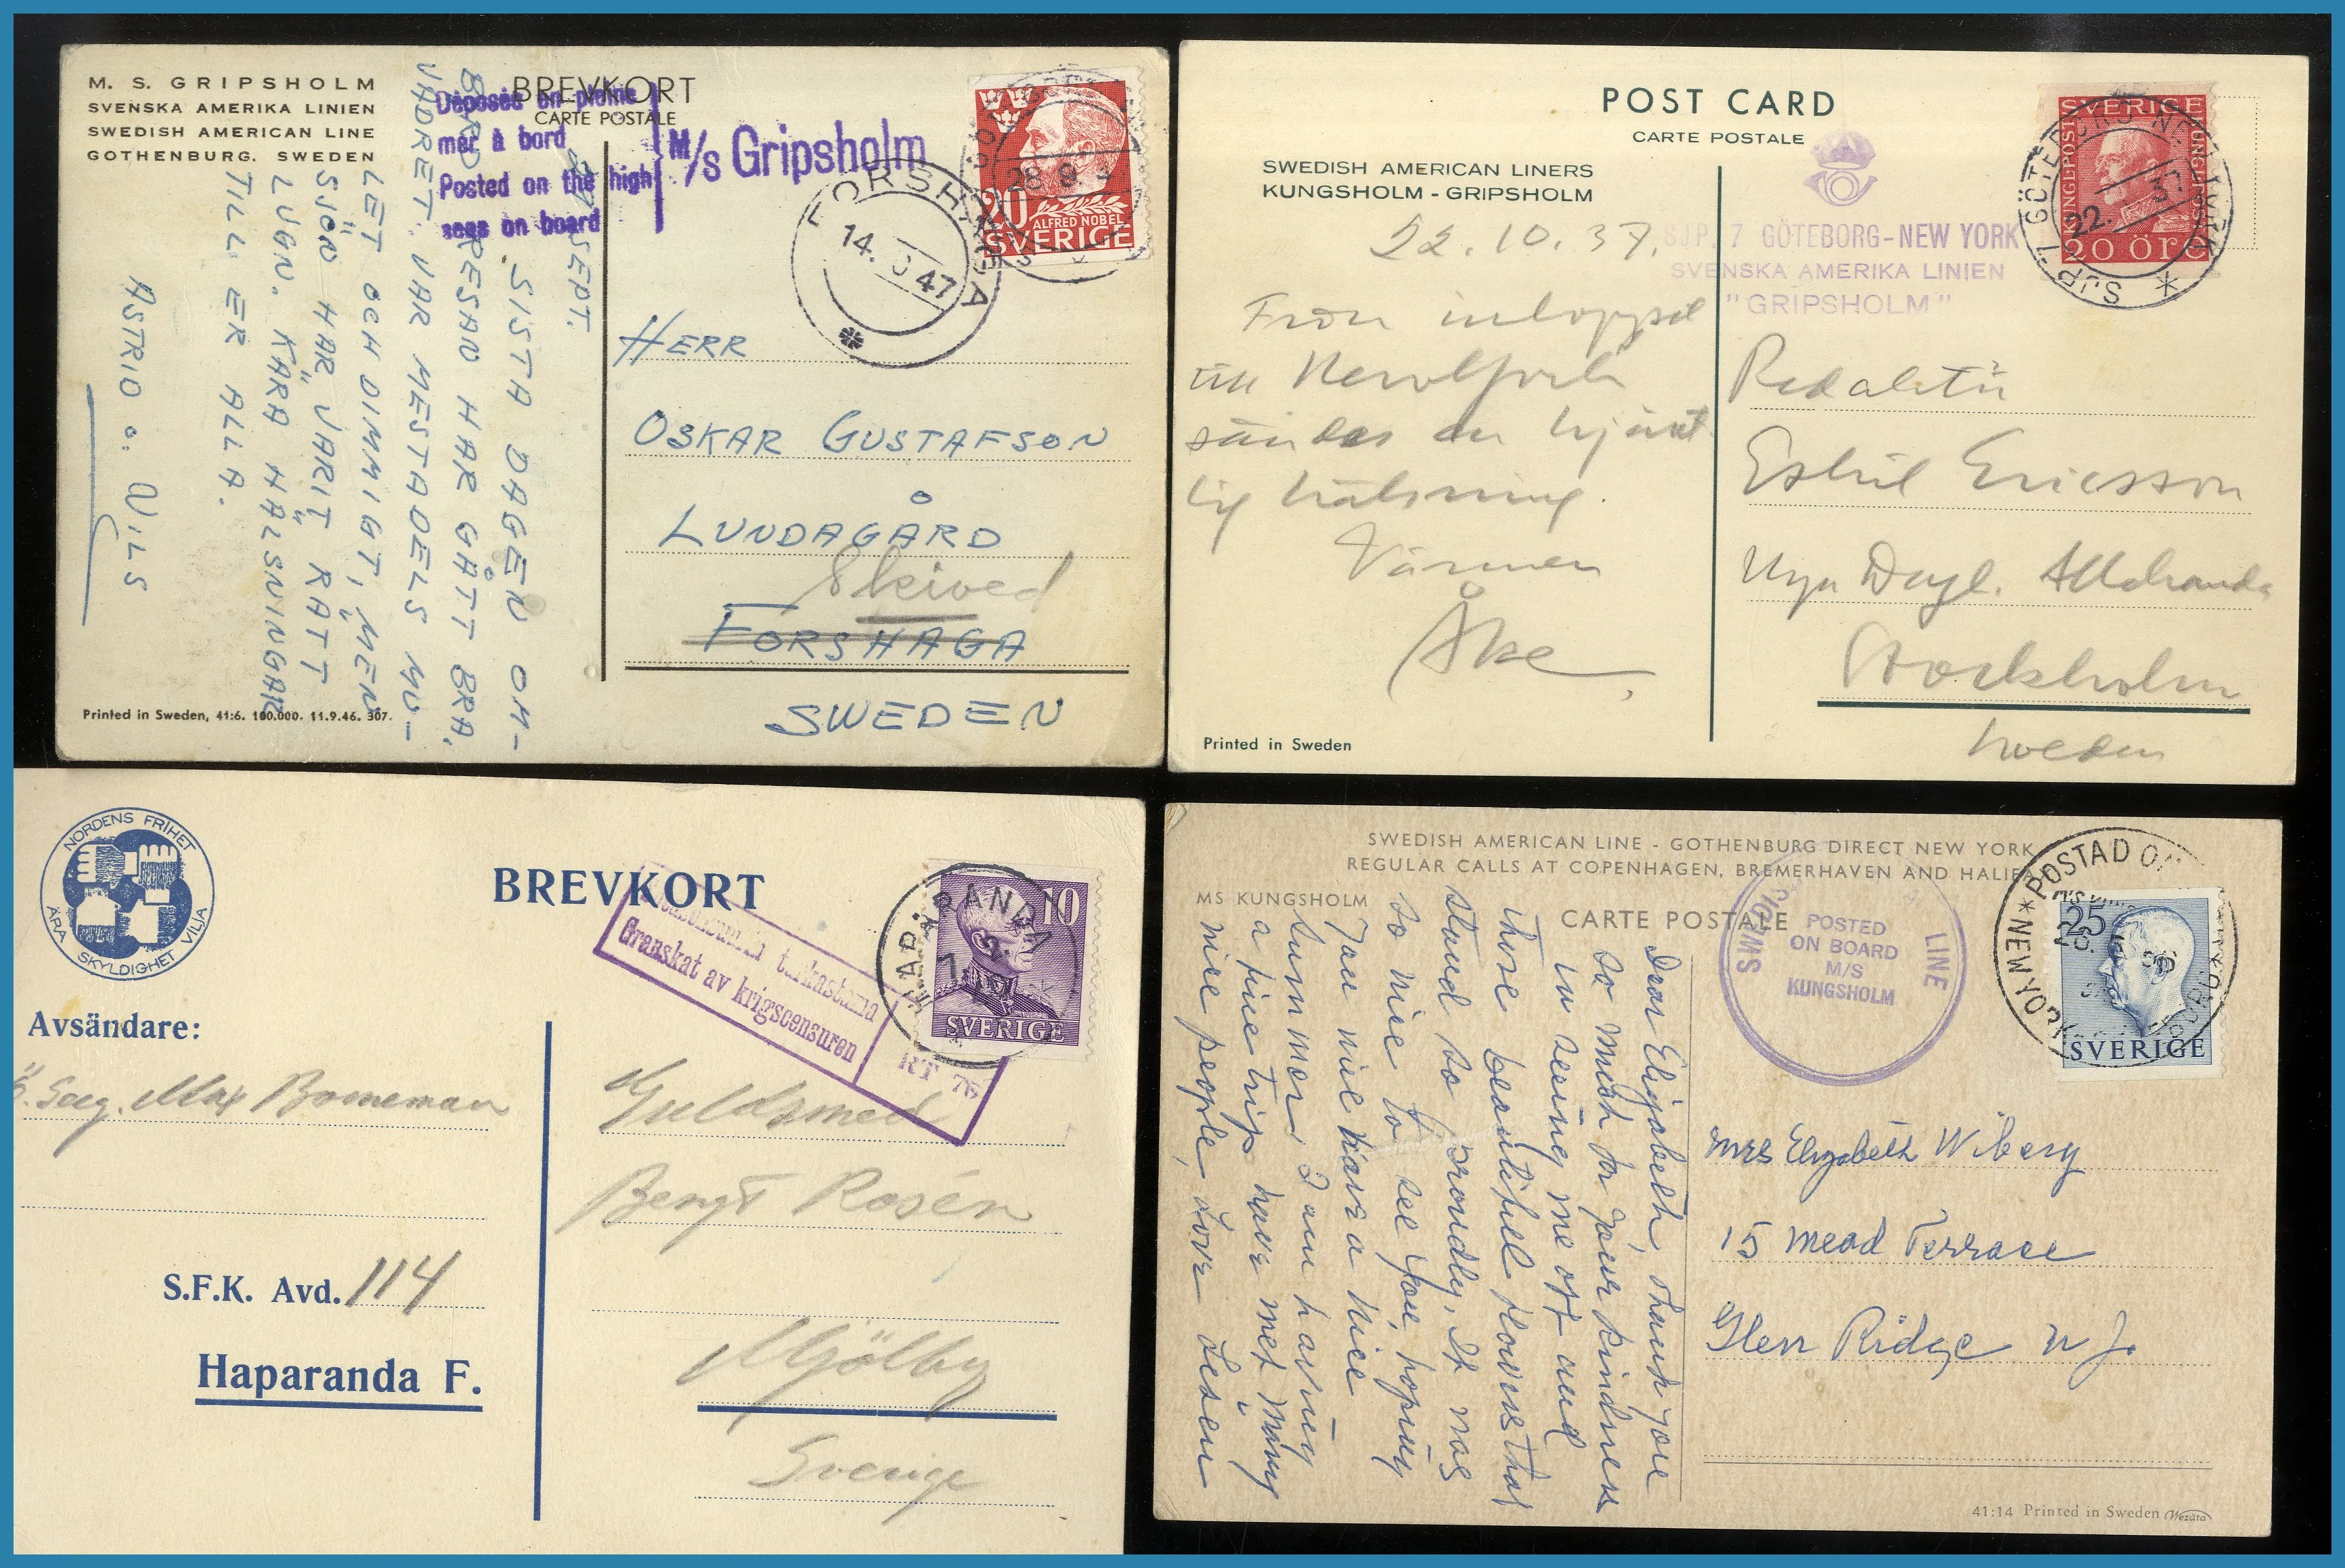 M. S. GRIPSHOLM
SVENSKA AMERIKA LINIEN
SWEDISH AMERICAN LINE
GOTHENBURG. SWEDEN
BREVKORT
CARTE POSTALE
Déposée en pleine
mer à bord
Posted on the high
seas on board
M/s Gripsholm
FORSHAGA
14. 47
28 9
20
ALFRED NOBEL
SVERIGE
SEPT.
SISTA DAGEN OM-
BORD. RESAN HAR GÅTT BRA,
VÄDRET VAR MESTADELS MU-
LET OCH DIMMIGT, MEN
SJÖN HAR VARIT RÄTT
LUGN. KÄRA HÄLSNINGAR
TILL ER ALLA.
ASTRID o. NILS
HERR
OSKAR GUSTAFSON
LUNDAGÅRD
Skived
FORSHAGA
SWEDEN
Printed in Sweden, 41:6. 100.000. 11.9.46. 307.
POST CARD
CARTE POSTALE
SWEDISH AMERICAN LINERS
KUNGSHOLM - GRIPSHOLM
SJP. 7 GÖTEBORG-NEW YORK
SVENSKA AMERIKA LINIEN
"GRIPSHOLM"
SVERIGE
KUNGL.POST
20 ÖRE
SJP. 7 GÖTEBORG NEW YORK
22. 37
22.10.37.
Från inloppet
till New York
sändes en hjärt
lig hälsning.
Vännen
Åke
Redaktör
Eskil Ericsson
Nya Dagl. Allehanda
Stockholm
Sweden
Printed in Sweden
NORDENS FRIHET
ÄRA SKYLDIGHET VILJA
BREVKORT
Sotasensuurin tarkastama
Granskat av krigscensuren
RT 76
HAPARANDA
7. 2.
10
SVERIGE
Avsändare:
Max Borneman
S.F.K. Avd. 114
Haparanda F.
Guldsmed
Bengt Rosén
Mjölby
Sverige
SWEDISH AMERICAN LINE - GOTHENBURG DIRECT NEW YORK
REGULAR CALLS AT COPENHAGEN, BREMERHAVEN AND HALIFAX
MS KUNGSHOLM
CARTE POSTALE
SWEDISH LINE
POSTED
ON BOARD
M/S
KUNGSHOLM
POSTAD
NEW YORK
25
SVERIGE
Dear Elizabeth, Thank you
so much for your kindness
in seeing me off and
those beautiful flowers that
stand so proudly. It was
so nice to see you, hoping
you will have a nice
summer. I am having
a fine trip have met many
nice people, Love
Mrs Elizabeth Wiberg
15 Mead Terrace
Glen Ridge N J.
41:14 Printed in Sweden Wezäta